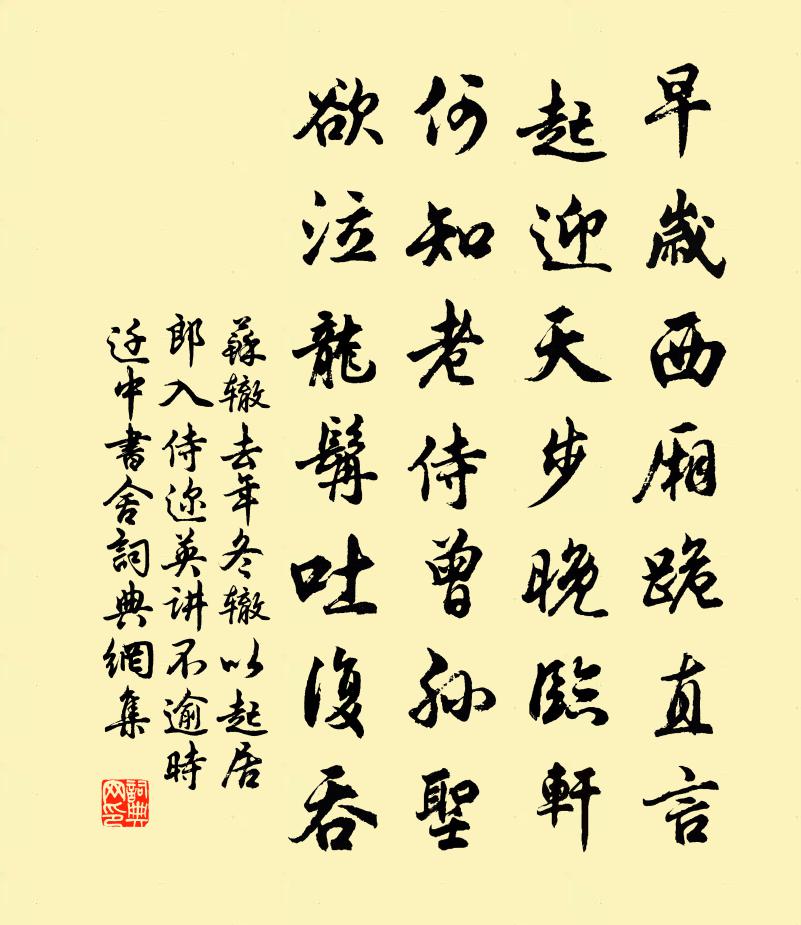 早歲西廂跪直言
起迎天步晚臨軒
何知老侍曾孫聖
欲泣龍髯吐復吞
蘇辙去年冬辙以起居
郎入侍迩英讲不逾時
迁中書舍詞典網集
詞典网印